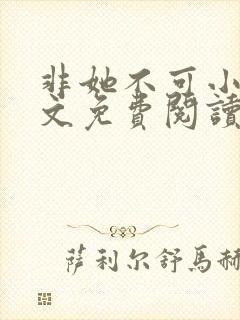 非她不可小
文免費閱讀
薩利尔舒馬赫